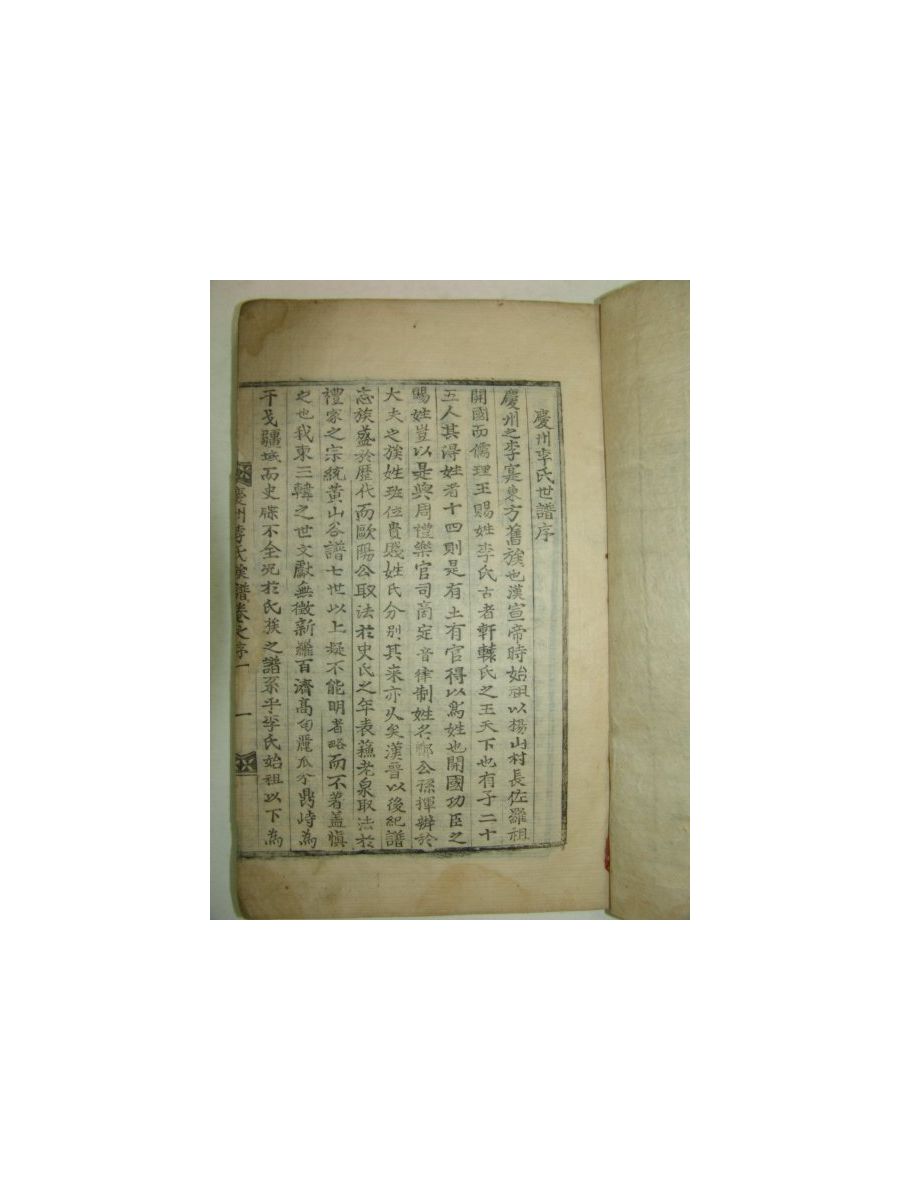 慶州李氏世譜序
慶州之李寔東方舊族也漢宣帝時始祖以楊山村長佐羅祖
開國而儒理王賜姓李氏古者軒轅氏之王天下也有子二十
五人其淂姓者十四則是有土有官得以爲姓也開國功臣之
賜姓豈以是與周禮樂官司商定音律制姓名鄭公孫揮辨於
大夫之族姓班位貴賤姓氏分別其来亦久矣漢晉以後紀譜
志族盛於歷代而歐陽公取法於史氏之年表蘓老泉取法於
禮家之宗統黃山谷譜七世以上疑不能明者略而不著盖愼
之也我東三韓之世文獻無徵新羅百濟高句麗瓜分鼎峙為
干戈疆埸而史牒不全况於氏族之譜系乎李氏始祖以下為
慶州李氏族譜卷之序一 一